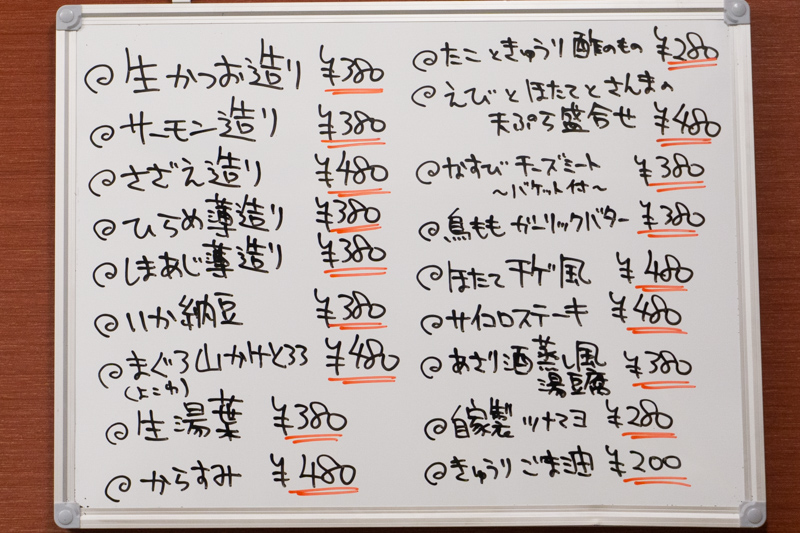 生かつお造り ¥380
サーモン造り ¥380
さざえ造り ¥480
ひらめ薄造り ¥380
しまあじ薄造り ¥380
いか納豆 ¥380
まぐろ山かけとろろ ¥480
(よこわ)
生湯葉 ¥380
からすみ ¥480
たこときゅうり酢のもの ¥280
えびとほたてとさんまの
天ぷら盛合せ ¥480
なすび チーズミート ¥380
～バケット付～
鳥もも ガーリックバター ¥380
ほたてチゲ風 ¥480
サイコロステーキ ¥480
あさり酒蒸し風 ¥380
湯豆腐
自家製 ツナマヨ ¥280
きゅうり ごま油 ¥200